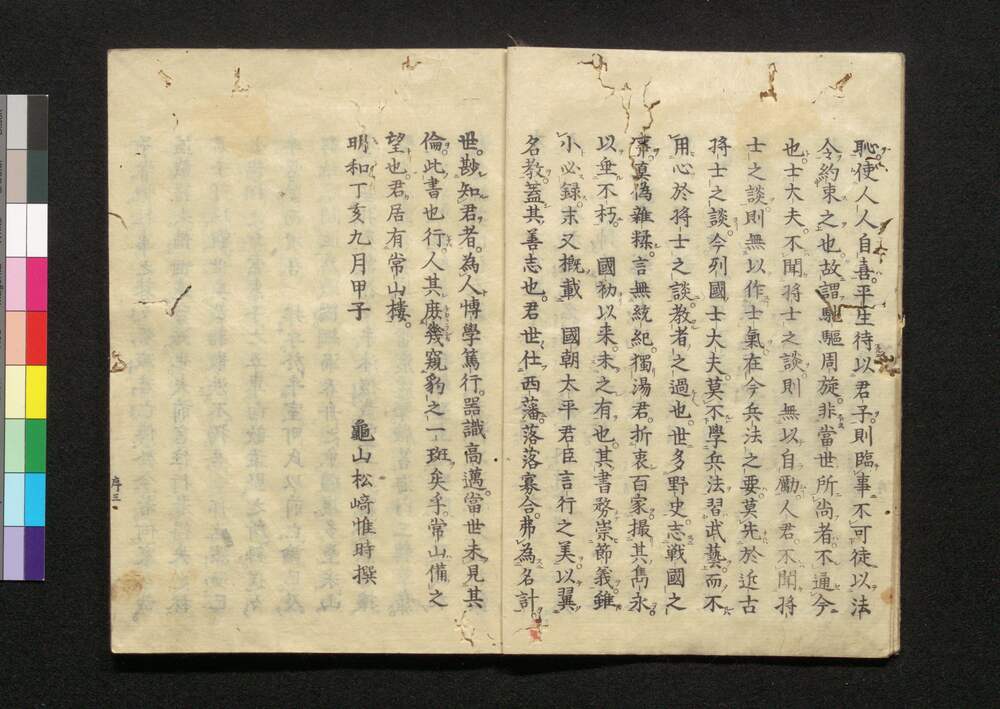 恥使人人自喜平生待以君子則臨事不可徒以法
令約束之也故謂馳驅周旋非當世所尚者不通今
也士大夫不聞將士之談則無以自勵人君不聞將
士之談則無以作士氣在今兵法之要莫先於近古
將士之談今列國士大夫莫不學兵法習武藝而不
用心於將士之談教者之過也世多野史志戰國之
事真偽雜糅言無統紀獨湯君折衷百家撮其雋永
以垂不朽 國初以來未之有也其書務崇節義雖
小必錄末又概載 國朝太平君臣言行之美以翼
名教蓋其善志也君世仕西藩落落寡合弗為名計
世尠知君者為人博學篤行器識高邁當世未見其
倫此書也行人其庶幾窺豹之一斑矣乎常山備之
望也君居有常山樓
明和丁亥九月甲子 龜山松﨑惟時撰
序三